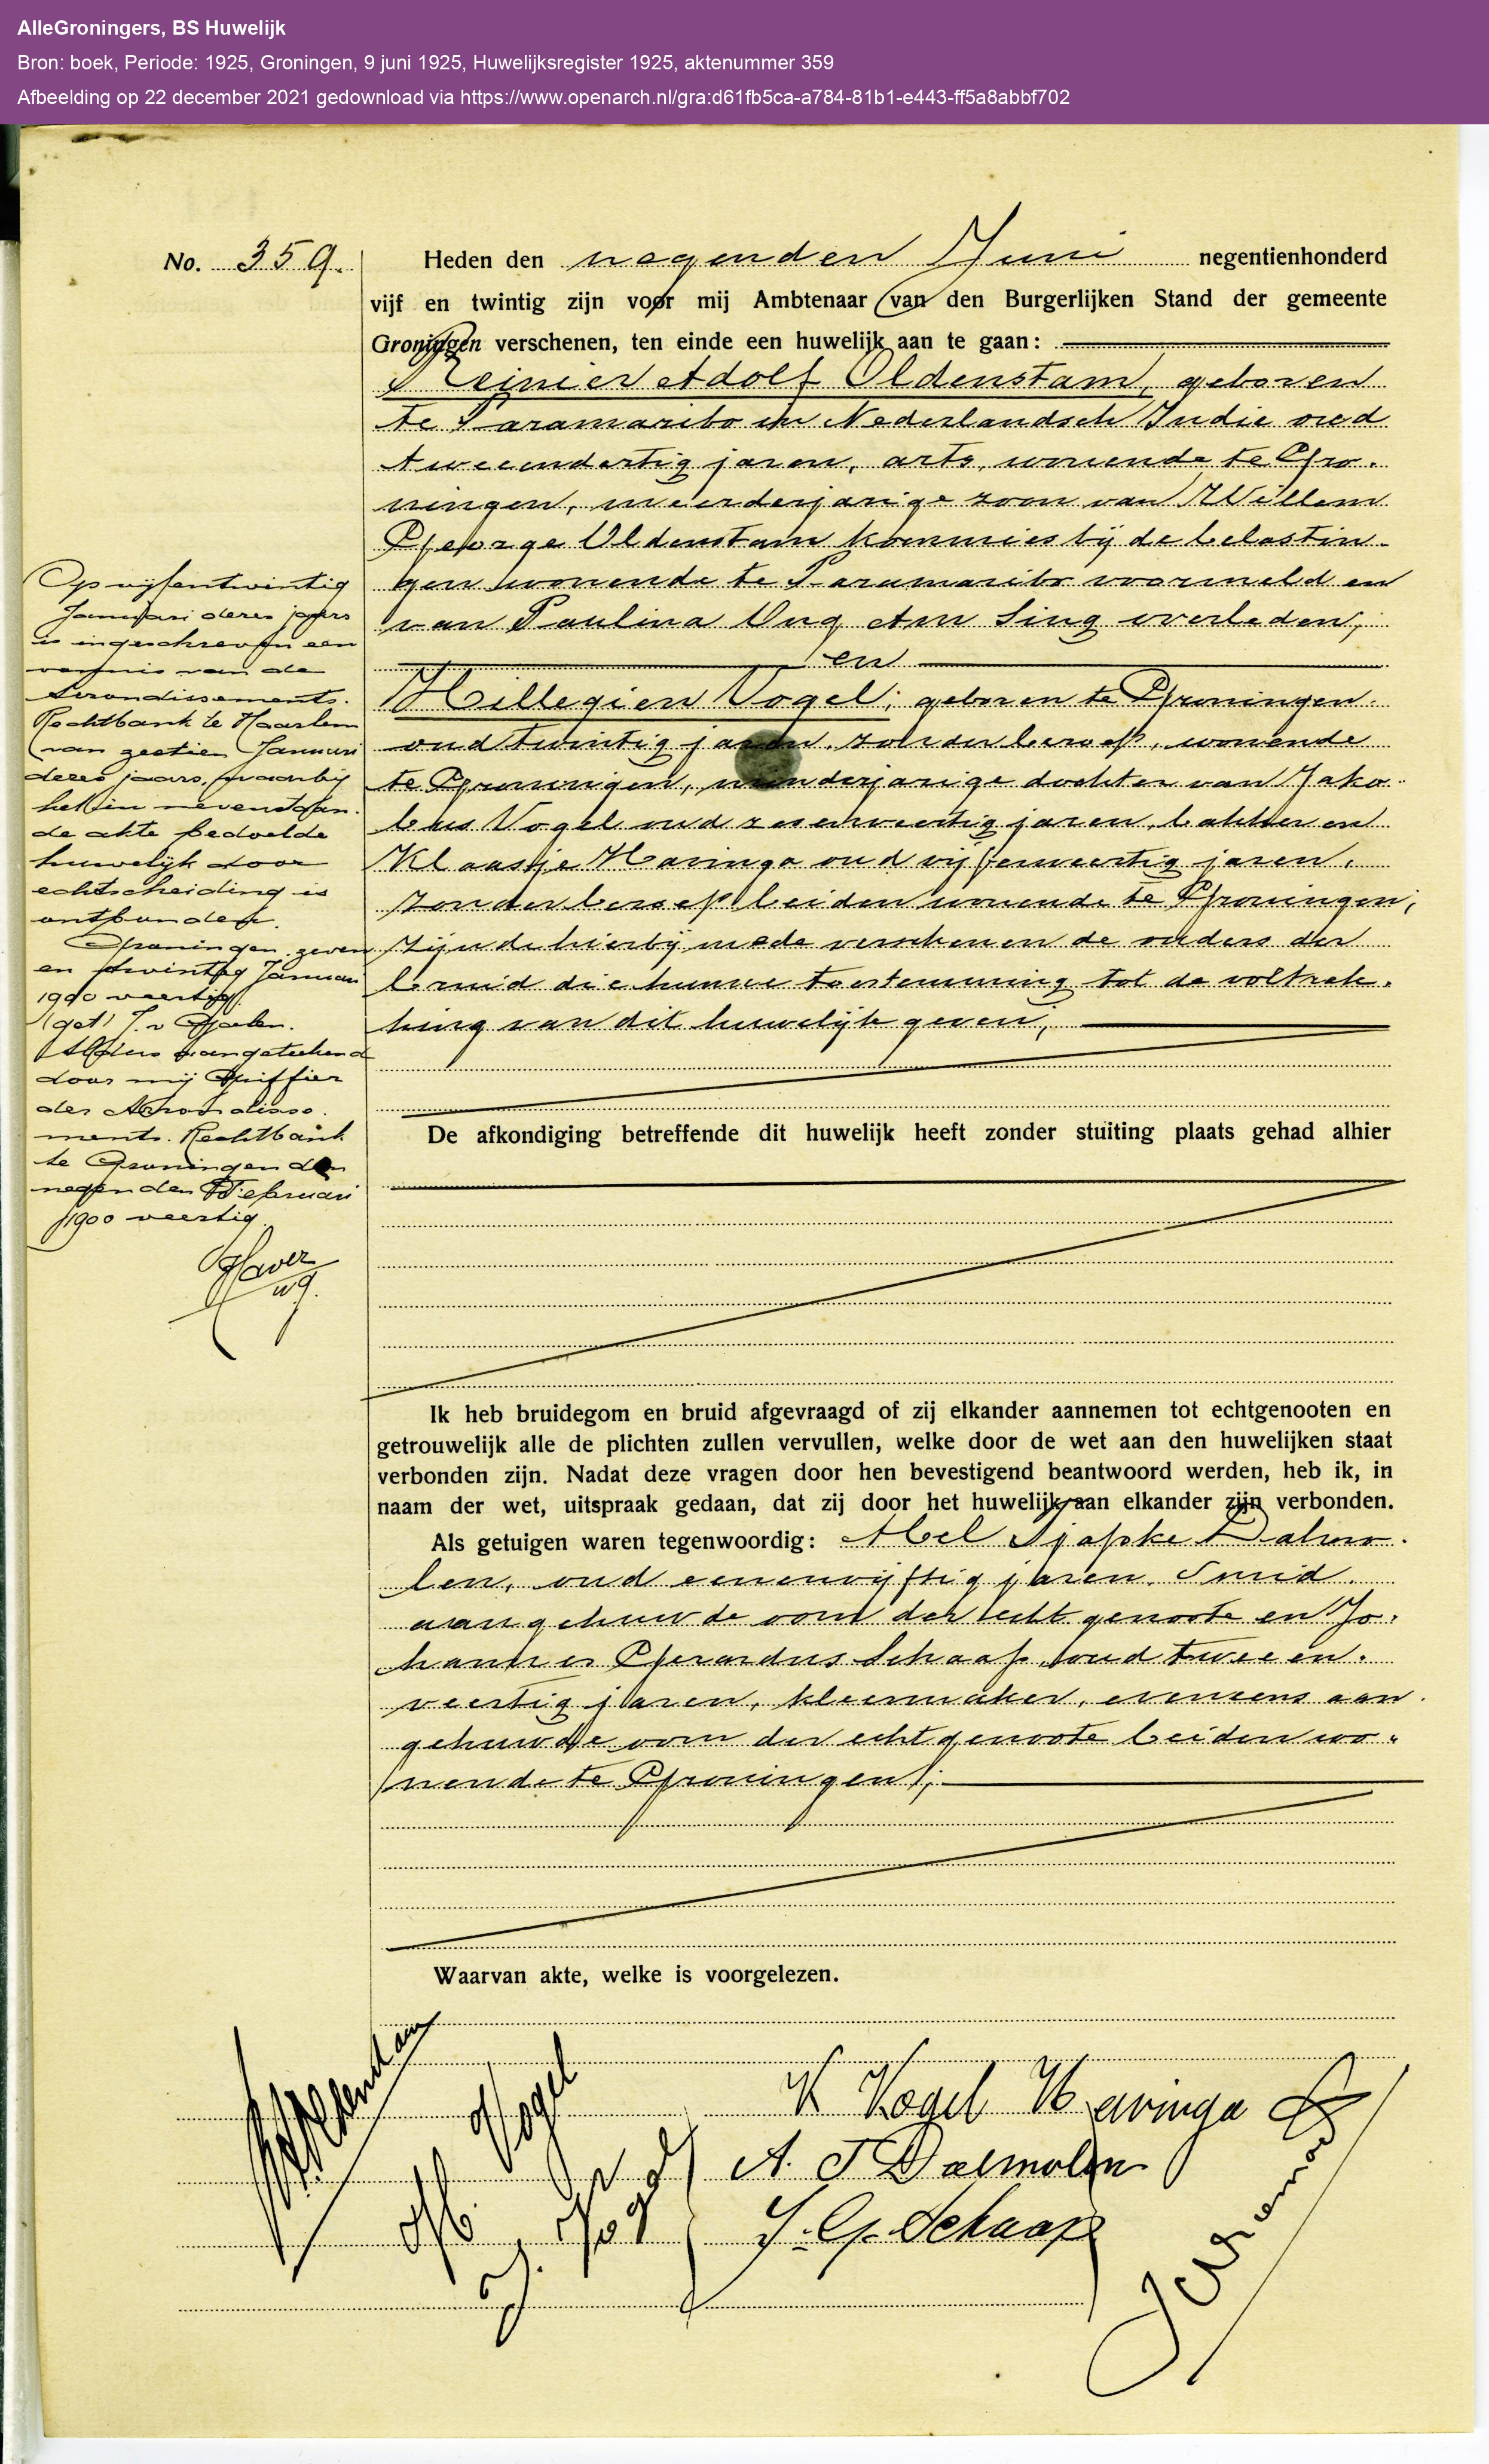 AlleGroningers, BS Huwelijk
Bron: boek, Periode: 1925, Groningen, 9 juni 1925, Huwelijksregister 1925, aktenummer 359
Afbeelding op 22 december 2021 gedownload via https://www.openarch.nl/gra:d61fb5ca-a784-81b1-e443-ff5a8abbf702
No. 359.
Heden den negenden Juni negentienhonderd
vijf en twintig zijn voor mij Ambtenaar van den Burgerlijken Stand der gemeente
Groningen verschenen, ten einde een huwelijk aan te gaan:
Reinier Adolf Oldenstam, geboren
te Paramaribo in Nederlandsch Indie oud
tweeendertig jaren, arts, wonende te Gro-
ningen, meerderjarige zoon van Willem
George Oldenstam kommies bij de belastin-
gen wonende te Paramaribo voormeld en
van Paulina Ong Am Sing overleden;
en
Hillegien Vogel, geboren te Groningen
oud twintig jaren, zonder beroep, wonende
te Groningen, minderjarige dochter van Jako-
bus Vogel oud zesenveertig jaren, bakker en
Klaasje Havinga oud vijfenveertig jaren,
zonder beroep beiden wonende te Groningen;
zijnde hierbij mede verschenen de ouders der
bruid die hunne toestemming tot de voltrek-
king van dit huwelijk geven;
Op vijfentwintig
Januari dezes jaars
is ingeschreven een
vonnis van de
Arrondissements-
Rechtbank te Haarlem
van zestien Januari
dezes jaars, waarbij
het in nevenstaan-
de akte bedoelde
huwelijk door
echtscheiding is
ontbonden.
Groningen zeven
en twintig Januari
1900 veertig
(get) J. v
Aldus aangeteekend
door mij Griffier
der Arrondisse-
ments-Rechtbank
te Groningen den
negenden Februari
1900 veertig
De afkondiging betreffende dit huwelijk heeft zonder stuiting plaats gehad alhier
Ik heb bruidegom en bruid afgevraagd of zij elkander aannemen tot echtgenooten en
getrouwelijk alle de plichten zullen vervullen, welke door de wet aan den huwelijken staat
verbonden zijn. Nadat deze vragen door hen bevestigend beantwoord werden, heb ik, in
naam der wet, uitspraak gedaan, dat zij door het huwelijk aan elkander zijn verbonden.
Als getuigen waren tegenwoordig: Abel Tjapke Dalmo-
len, oud eenenvijftig jaren, Smid,
aangehuwde oom der echtgenoote en Jo-
hannes Gerardus Schaap, oud tweeen-
veertig jaren, kleermaker, eveneens aan-
gehuwde oom der echtgenoote beiden wo-
nende te Groningen;
Waarvan akte, welke is voorgelezen.
Oldenstam
H. Vogel
J. Vogel
K Vogel Havinga
A. T Dalmolen
J. G. Schaap